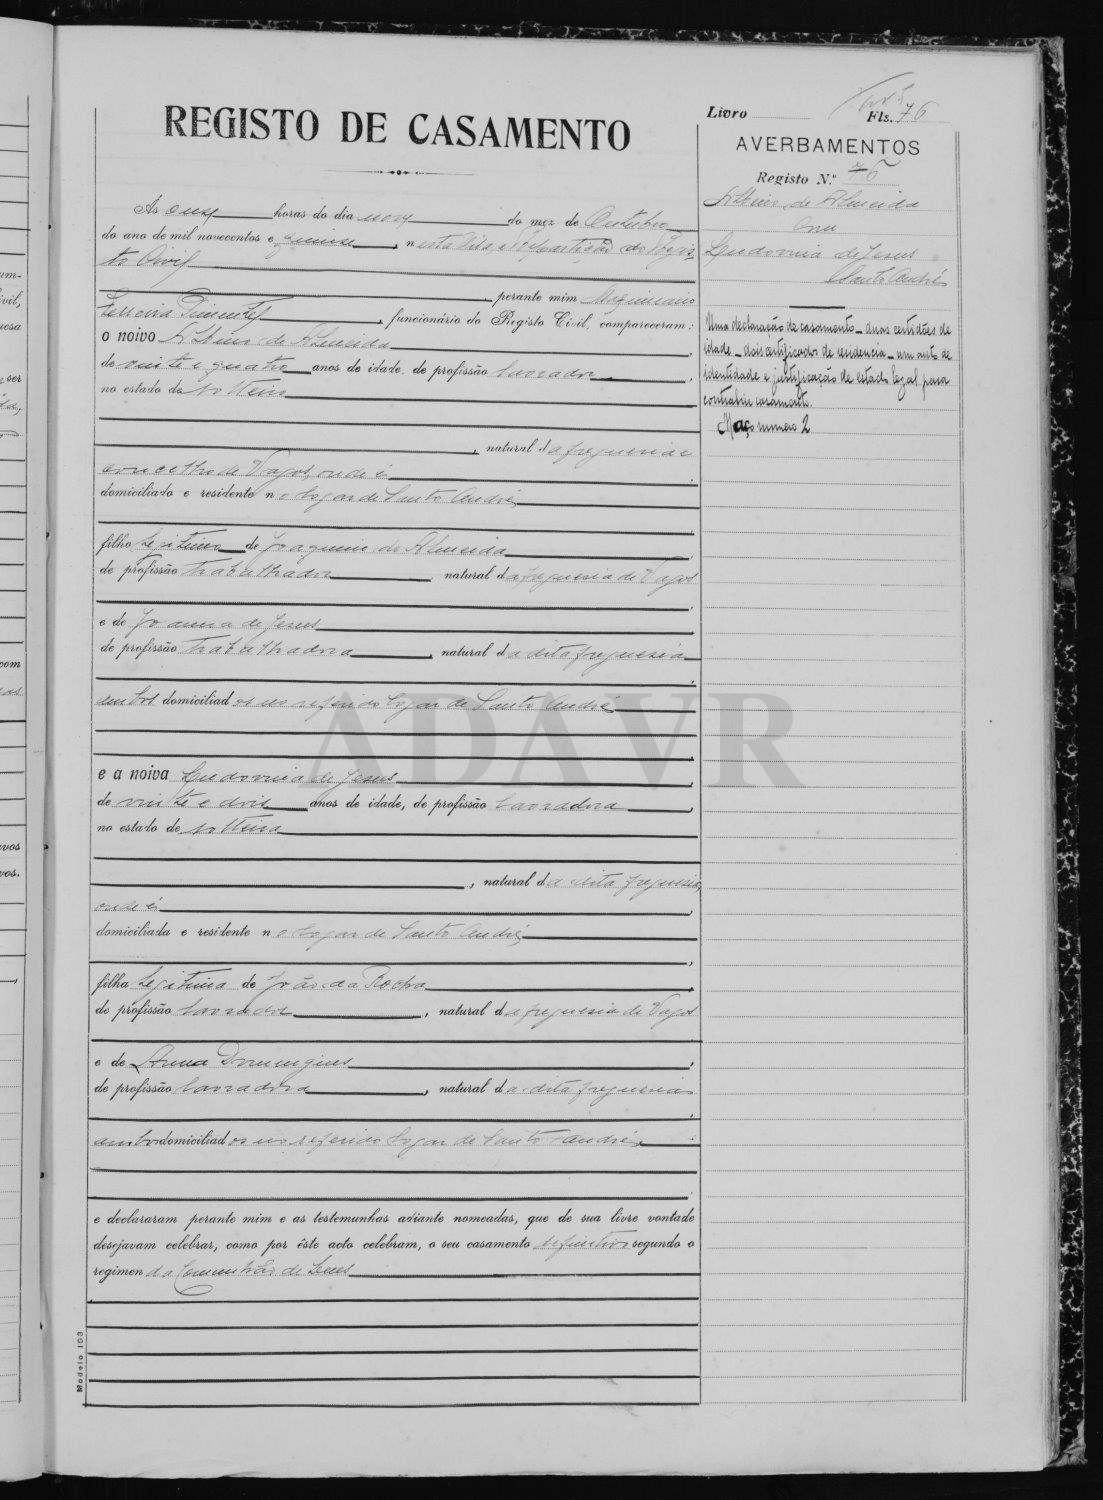 Livro Fls. 76
REGISTO DE CASAMENTO
AVERBAMENTOS
Registo N.º 76
Albino de Almeida
com
Ludovina de Jesus
Santo André
Uma declaração de casamento - duas certidões de
idade - dois certificados de residencia - um auto de
identidade e justificação de estado legal para
contrahir casamento.
Maço numero 2
As onze horas do dia nove do mez de Outubro
do ano de mil novecentos e quinze, nesta Vila, e Repartição do Regis-
to Civil
perante mim
Ferreira Pimentel, funcionário do Registo Civil, compareceram:
o noivo Albino de Almeida,
de vinte e quatro anos de idade, de profissão lavrador,
no estado de solteiro
, natural da freguesia e
concelho de Vagos, onde é
domiciliado e residente no logar de Santo André,
filho legitimo de Joaquim de Almeida
de profissão trabalhador, natural da freguesia de Vagos
e de Joanna de Jesus
de profissão trabalhadora, natural da dita freguesia
ambos domiciliados no referido logar de Santo André,
e a noiva Ludovina de Jesus
de vinte e dois anos de idade, de profissão lavradora,
no estado de solteira
, natural da dita freguesia,
onde é
domiciliada e residente no logar de Santo André,
filha legitima de João da Rocha
de profissão lavrador, natural da freguesia de Vagos
e de Anna Domingues
de profissão lavradora, natural da dita freguesia
ambos domiciliados no referido logar de Santo André,
e declararam perante mim e as testemunhas adiante nomeadas, que de sua livre vontade
desejavam celebrar, como por êste acto celebram, o seu casamento definitivo segundo o
regimen da Comunhão de bens
Modelo 103
ADAVR